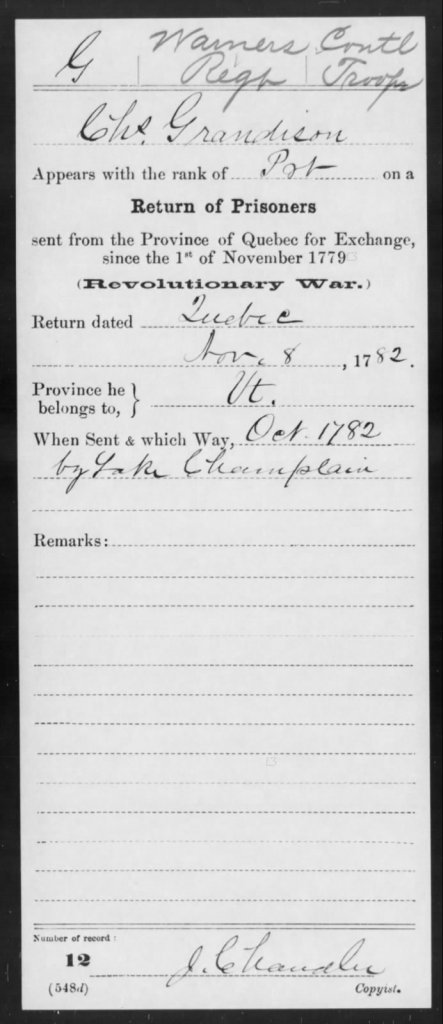 G | Warners Contl
Regt | Troops
Chs. Grandison
Appears with the rank of Pvt on a
Return of Prisoners
sent from the Province of Quebec for Exchange,
since the 1st of November 1779
(Revolutionary War.)
Return dated Quebec
Nov. 8, 1782.
Province he belongs to, } Vt.
When Sent & which Way, Oct. 1782
by Lake Champlain
Remarks:
Number of record:
12
J. Chandler
(548d) Copyist.